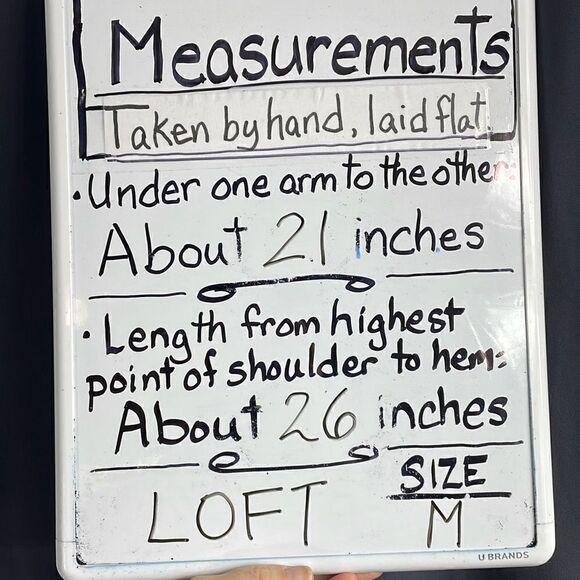 Measurements
Taken by hand, laid flat
• Under one arm to the other:
About 21 inches
• Length from highest
point of shoulder to hem:
About 26 inches
SIZE
LOFT M
U BRANDS